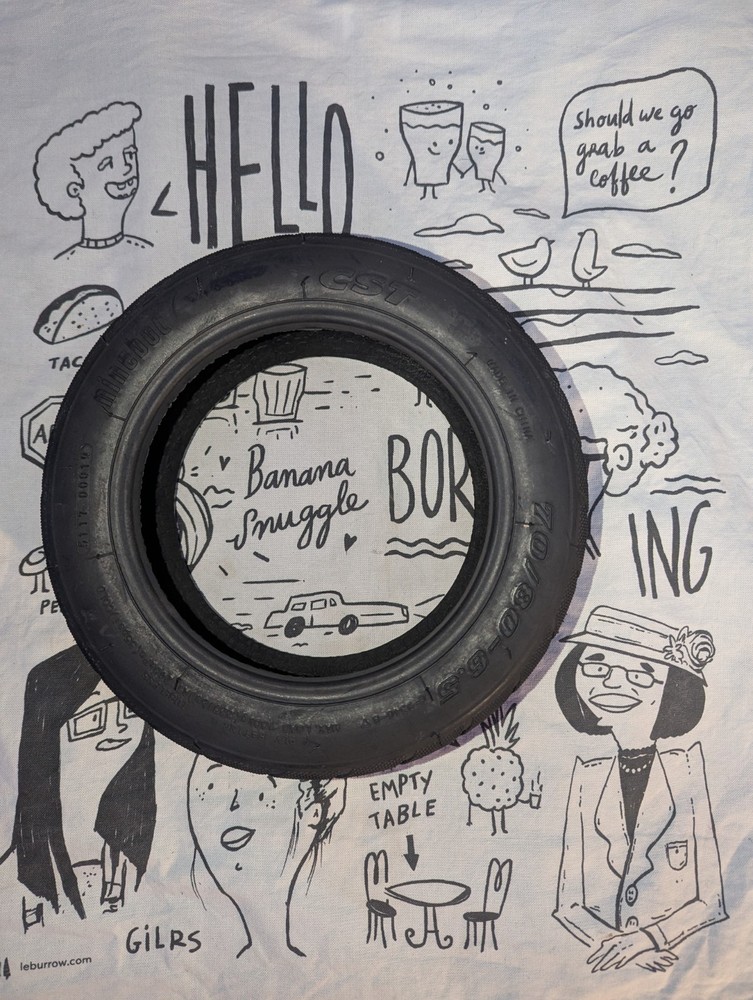 HELLO
should we go
grab a
coffee?
TAC
CST
MADE IN CHINA
70/80-6.5
Banana
Snuggle
BOR
ING
PE
EMPTY
TABLE
GiLRS
leburrow.com